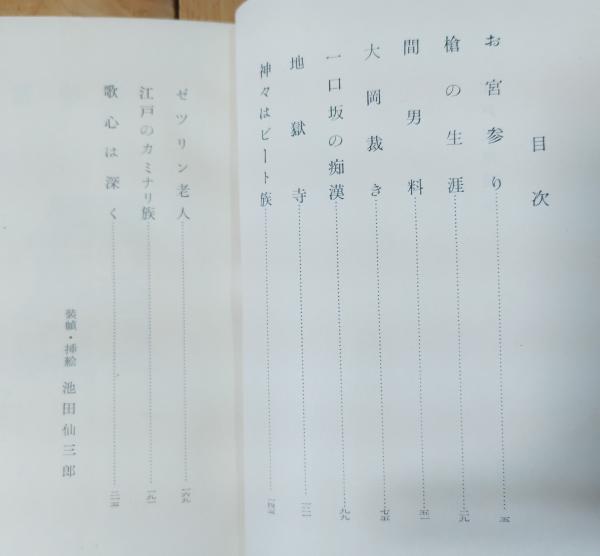 目次
お宮参り……五
槍の生涯……二九
間男料……五一
大岡裁き……七五
一口坂の痴漢……九九
地獄寺……一二一
神々はビート族……一四五
ゼツリン老人……一六九
江戸のカミナリ族……一九一
歌心は深く……二一五
装幀・挿絵 池田仙三郎